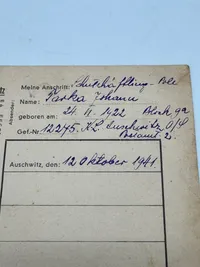 Absender:
Meine Anschrift: Schutzhäftling - Pole
Name: Parka Johann
geboren am: 24. II. 1922 Block 9a
Gef.-Nr. 12245. K.L. Auschwitz O/S
Postamt 2.
Auschwitz, den: 12 Oktober 1941